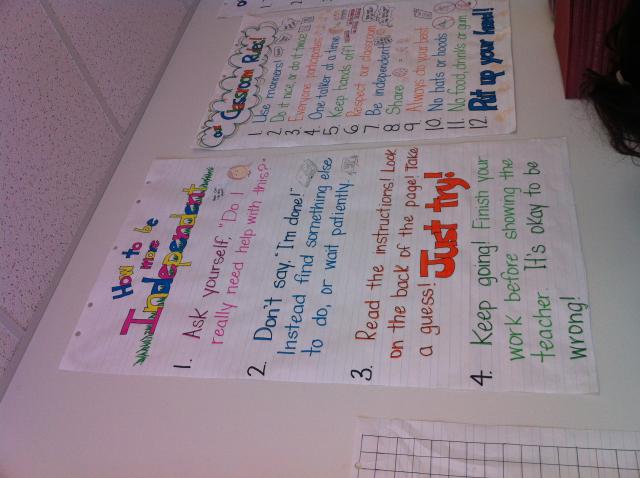 Our Classroom Rules!
1. Use manners!
2. Do it nice or do it twice
3. Everyone participates
4. One talker at a time
5. Keep hands off!
6. Respect our classroom
7. Be independent!
8. Share
9. Always do your best
10. No hats or hoods
11. No food, drinks or gum
12. Put up your hand!
How to be
more
Independent
1. Ask yourself, "Do I
really need help with this?"
2. Don't say, "I'm done!"
Instead find something else
to do, or wait patiently.
3. Read the instructions! Look
on the back of the page! Take
a guess! Just try!
4. Keep going! Finish your
work before showing the
teacher. It's okay to be
wrong!